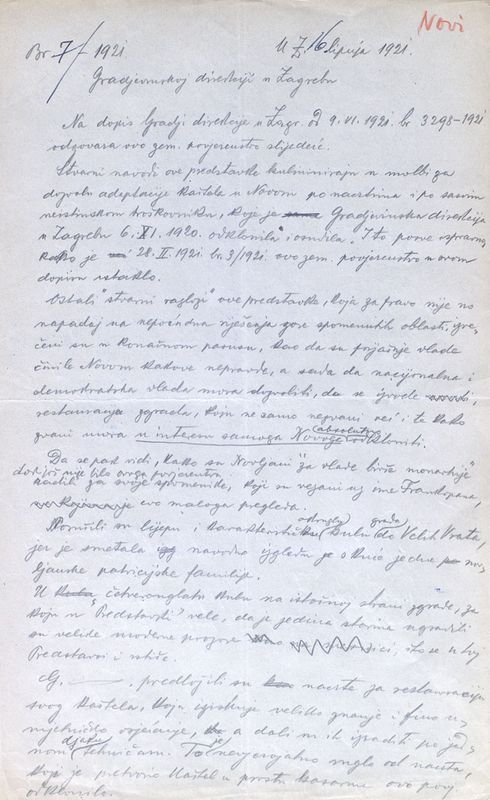 Novi
Br 7/ 1921 U Z. 16 lipnja 1921.
Gradjevinskoj direkciji u Zagrebu
Na dopis Gradj direkcije u Zagr. od 9. VI. 1921. br 3298-1921
odgovara ovo zem. povjerenstvo slijedeće.
Stvarni navodi ove predstavke kulminiraju u molbi za
dozvolu adaptacije kaštela u Novom po nacrtima i po sasvim
neistinskom troškovniku, koje je Gradjevinska direkcija
u Zagrebu 6. XI. 1920. odklonila i osudila. I to posve ispravno,
kako je 28. II. 1921. br. 3/1921. ovo zem. povjerenstvo u svom
dopisu istaklo.
Ostali "stvarni razlozi" ove predstavke, koja za pravo nije no
napadaj na nepovoljna rješenja gore spomenutih oblasti,
su u konačnom pasusu, kao da su prijašnje vlade
činile Novom kakove nepravde, a sada da nacijonalna i
demokratska vlada mora dozvoliti, da se izvede
restauracija zgrada, koju ne samo nezvani već i te kako
zvani mora u interesu samoga Novoga absolutno odkloniti.
Da se pak vidi, kako su Novljani "za vlade bivše monarkije"
dok još nije bilo ovoga povjerenstva
marili za svoje spomenike, koji su vezani uz ime Frankopana,
evo maloga pregleda.
Porušili su lijepu i karakterističnu okruglu kulu grada do Velih Vrata,
jer je smetala navodno izgledu je s kuće jedne no-
vljanske patricijske familije.
U četverouglatu kulu na istočnoj strani zgrade, za
koju u "Predstavki" vele, da je jedina starina ugradili
su velike moderne prozore što se u toj
Predstavci i ističe.
G. predložili su nacrte za restauraciju
svog kaštela, koja iziskuje veliko znanje i fino u-
mjetničko osjećanje, a dali su ih izraditi po jed-
nom djaku tehničaru.
koji je pretvorio kaštel u prostu kasarnu ovo povj.
odklonilo.